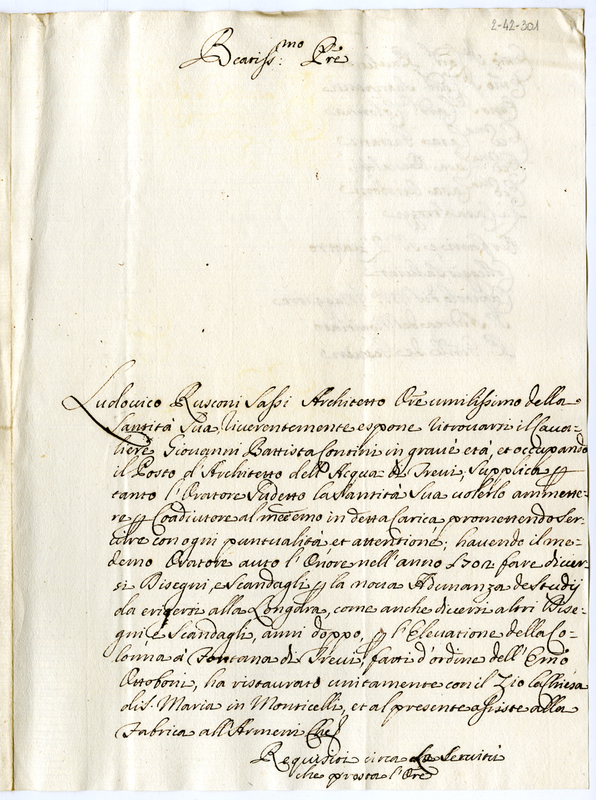 2-42-301
Beatiss:mo Pre
Ludovico Rusconi Sassi Architetto Ore umilissimo della
Santità Sua, riverentemente espone ritrovarsi il Cava-
liere Giovanni Battista Contini in grave età, et occupando
il Posto d'Architetto dell'Acqua di Trevi, supplica p
tanto l'Oratore sudetto la Santità Sua volerlo ammette-
re p Coadiutore al med:emo in detta Carica, promettendo ser-
vire con ogni puntualità et attentione; havendo il me-
demo Oratore avuto l'Onore nell'anno 1702 fare diver-
si Disegni, e Scandagli p la nova Adunanza de Studij
da erigersi alla Longara, come anche diversi altri Dise-
gni e Scandagli, anni doppo, p l'Elevatione della Co-
lonna à Fontana di Trevi, fatti d'ordine dell'Emo
Ottoboni, ha ristaurato unitamente con il Zio la Chiesa
di S. Maria in Monticelli, et al presente assiste alla
Fabrica all'Armeni Che
Requisiti circa la Servitù
che presta l'Ore